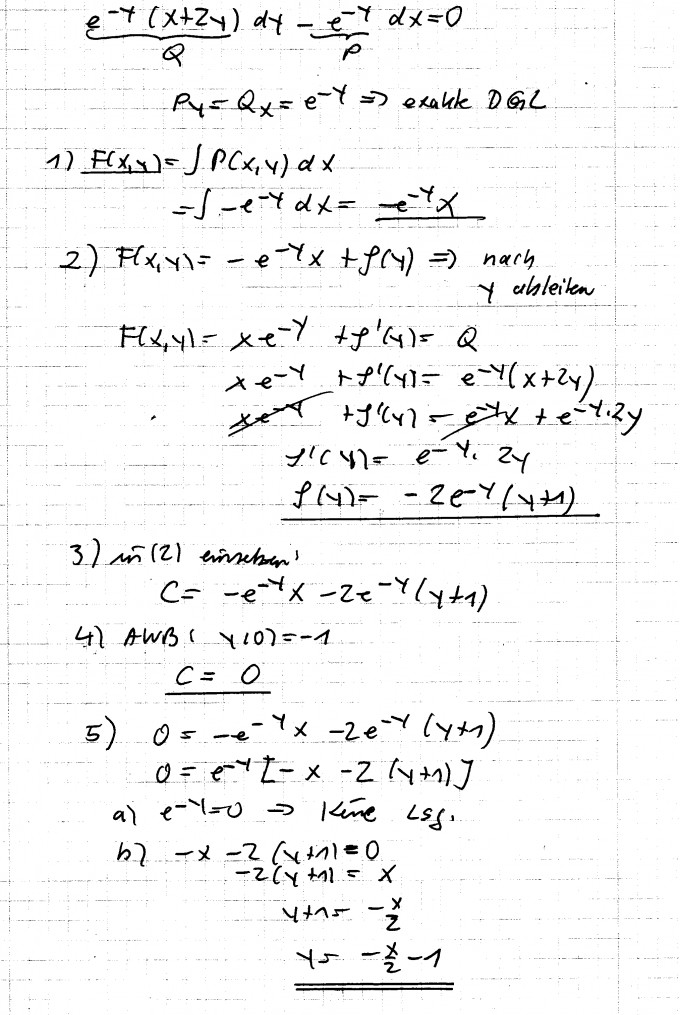 e^-y (x+2y) dy - e^-y dx = 0
Q P
Py = Qx = e^-y => exakte DGL
1) F(x,y) = ∫ P(x,y) dx
= ∫ -e^-y dx = -e^-y x
2) F(x,y) = - e^-y x + f(y) => nach
y ableiten
F(x,y) = x e^-y + f'(y) = Q
x e^-y + f'(y) = e^-y (x+2y)
x e^-y + f'(y) = e^-y x + e^-y · 2y
f'(y) = e^-y · 2y
f(y) = - 2e^-y (y+1)
3) in (2) einsetzen:
C = -e^-y x - 2e^-y (y+1)
4) AWB: y(0) = -1
C = 0
5) 0 = -e^-y x - 2e^-y (y+1)
0 = e^-y [-x - 2 (y+1)]
a) e^-y = 0 => Keine Lsg.
b) -x - 2 (y+1) = 0
-2(y+1) = x
y+1 = -x/2
y = -x/2 - 1